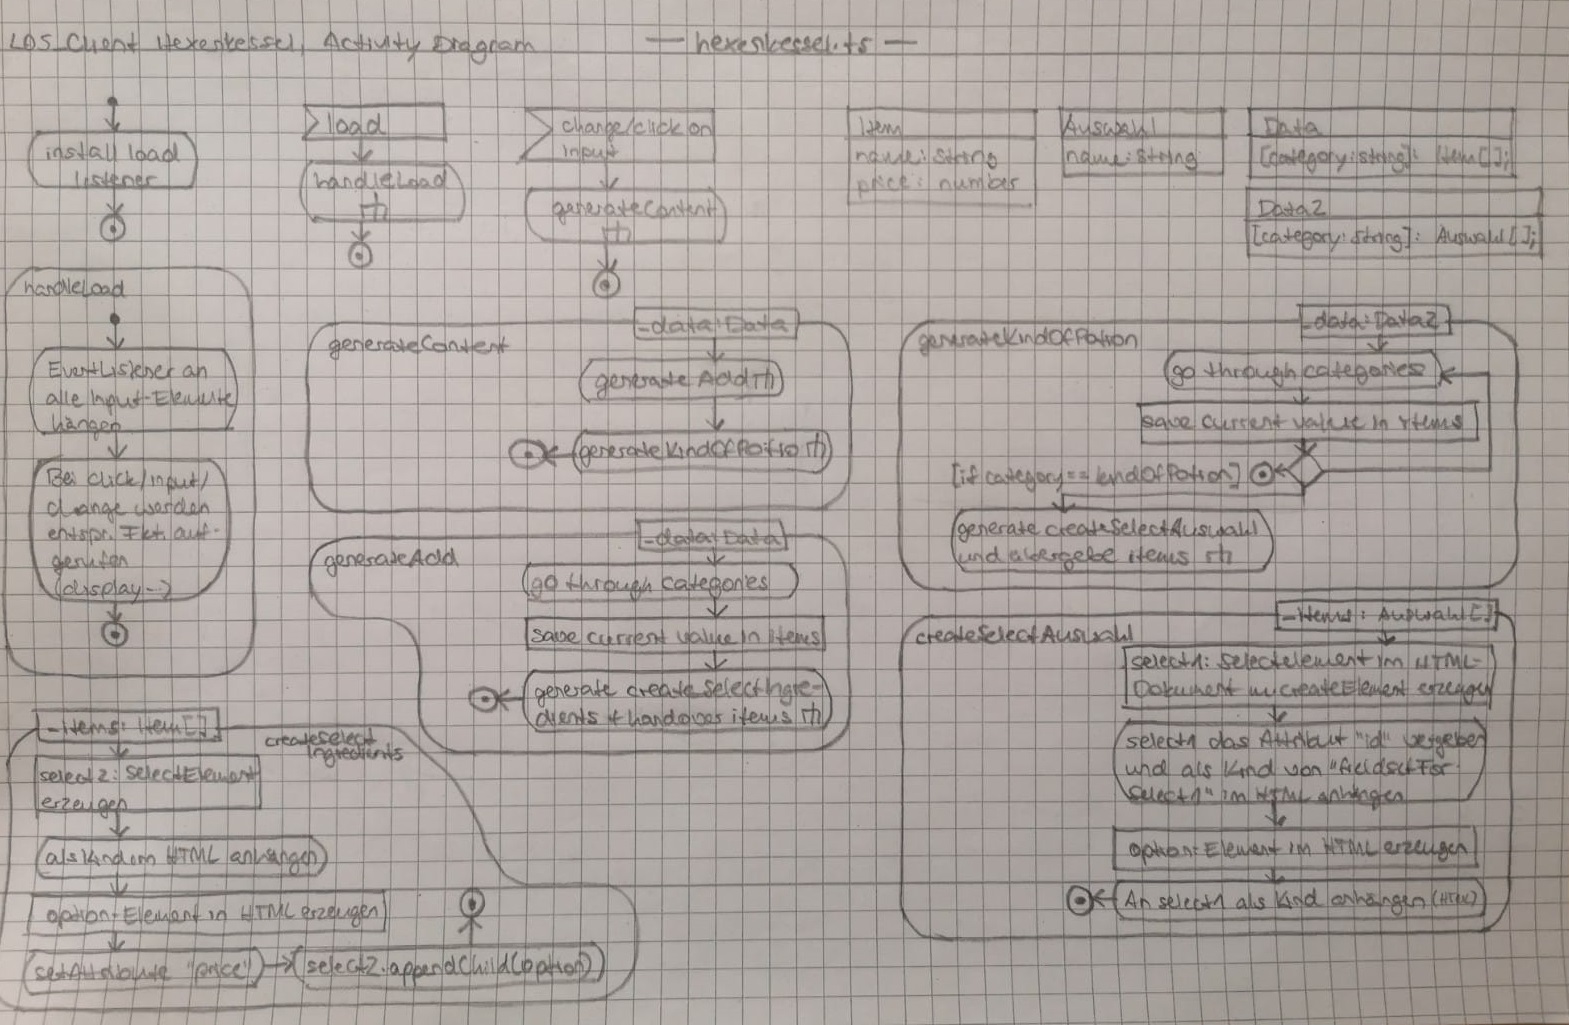 L05 Client Hexenkessel, Activity Diagram — hexenkessel.ts —
install load
listener
load
handleLoad
change/click on
input
generateContent
Item
name: string
price: number
Auswahl
name: string
Data
[category: string]: Item[];
Data2
[category: string]: Auswahl[];
handleLoad
EventListener an
alle Input-Elemente
hängen
Bei click/input/
change werden
entspr. Fkt. auf-
gerufen
(display...)
generateContent
_data: Data
generateAdd
generateKindOfPotio
generateAdd
_data: Data
go through categories
save current value in items
generate createSelectIngre-
dients + handover items
generateKindOfPotion
_data: Data2
go through categories
save current value in items
[if category == kindOfPotion]
generate createSelectAuswahl
und übergebe items
createSelectAuswahl
_items: Auswahl[]
select1: Selectelement im HTML-
Dokument m. createElement erzeugen
select1 das Attribut "id" vergeben
und als Kind von
Select1" im HTML anhängen
option: Element im HTML erzeugen
An select1 als Kind anhängen (HTML)
_items: Item[]
createSelect
Ingredients
select2: SelectElement
erzeugen
als Kind im HTML anhängen
option: Element in HTML erzeugen
setAttribute "price"
select2.appendChild(option)